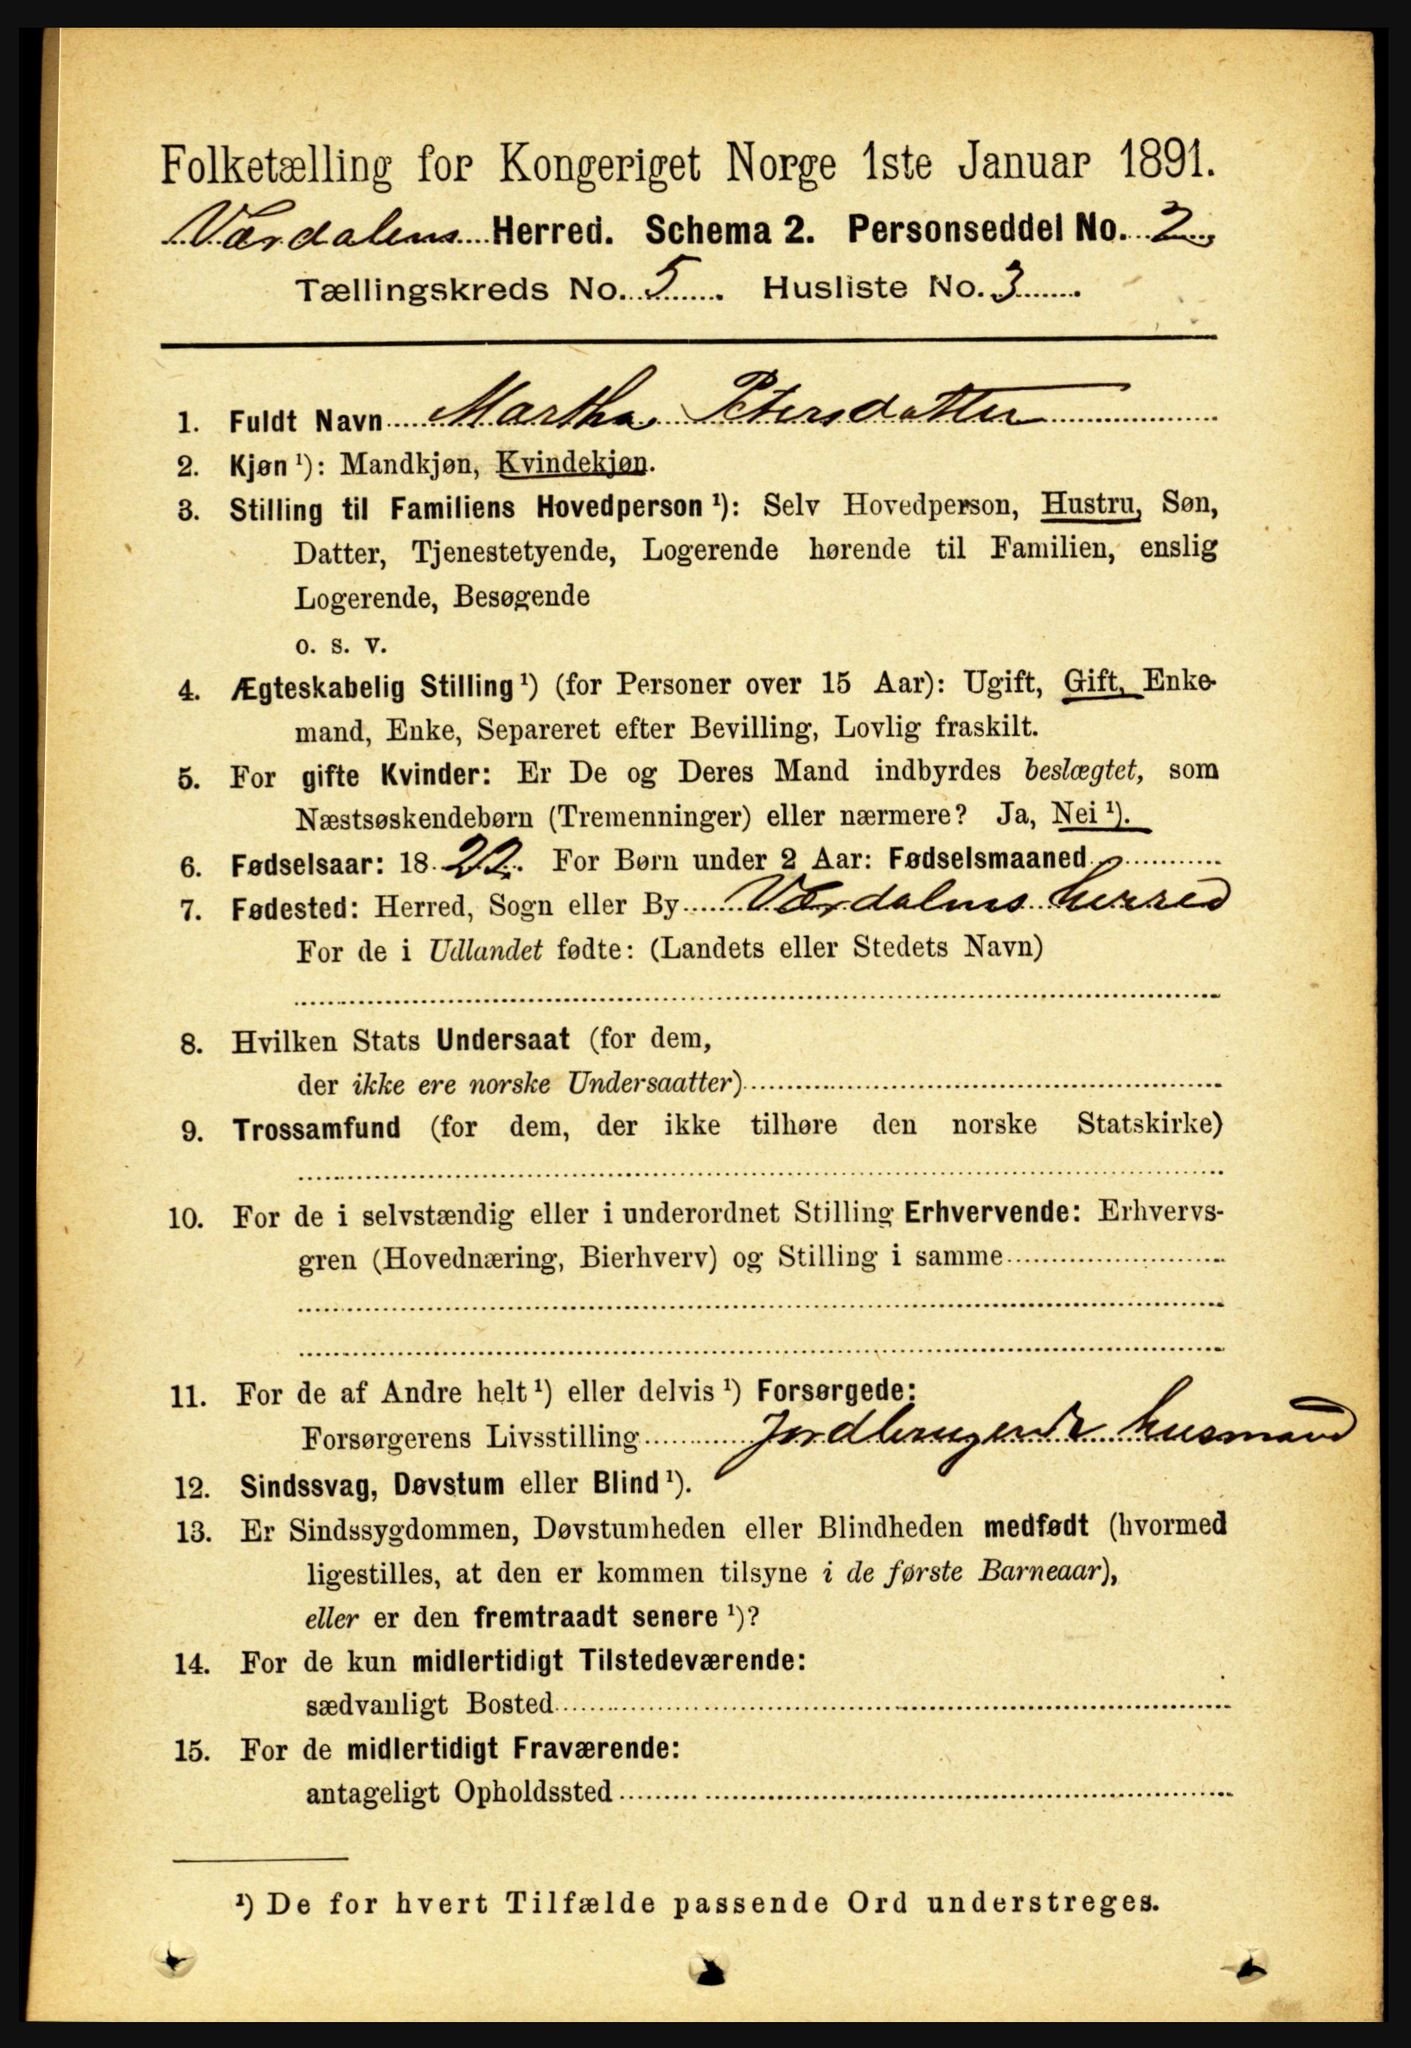 Folketælling for Kongeriget Norge 1ste Januar 1891.
Værdalens Herred. Schema 2. Personseddel No. 2
Tællingskreds No. 5. Husliste No. 3.
1. Fuldt Navn Martha Petersdatter
2. Kjøn ¹): Mandkjøn, Kvindekjøn.
3. Stilling til Familiens Hovedperson ¹): Selv Hovedperson, Hustru, Søn,
Datter, Tjenestetyende, Logerende hørende til Familien, enslig
Logerende, Besøgende
o. s. v.
4. Ægteskabelig Stilling ¹) (for Personer over 15 Aar): Ugift, Gift, Enke-
mand, Enke, Separeret efter Bevilling, Lovlig fraskilt.
5. For gifte Kvinder: Er De og Deres Mand indbyrdes beslægtet, som
Næstsøskendebørn (Tremenninger) eller nærmere? Ja, Nei ¹).
6. Fødselsaar: 18 22. For Børn under 2 Aar: Fødselsmaaned
7. Fødested: Herred, Sogn eller By Værdalens herred
For de i Udlandet fødte: (Landets eller Stedets Navn)
8. Hvilken Stats Undersaat (for dem,
der ikke ere norske Undersaatter)
9. Trossamfund (for dem, der ikke tilhøre den norske Statskirke)
10. For de i selvstændig eller i underordnet Stilling Erhvervende: Erhvervs-
gren (Hovednæring, Bierhverv) og Stilling i samme
11. For de af Andre helt ¹) eller delvis ¹) Forsørgede:
Forsørgerens Livsstilling Jordbrugende husmand
12. Sindssvag, Døvstum eller Blind ¹).
13. Er Sindssygdommen, Døvstumheden eller Blindheden medfødt (hvormed
ligestilles, at den er kommen tilsyne i de første Barneaar),
eller er den fremtraadt senere ¹)?
14. For de kun midlertidigt Tilstedeværende:
sædvanligt Bosted
15. For de midlertidigt Fraværende:
antageligt Opholdssted
¹) De for hvert Tilfælde passende Ord understreges.